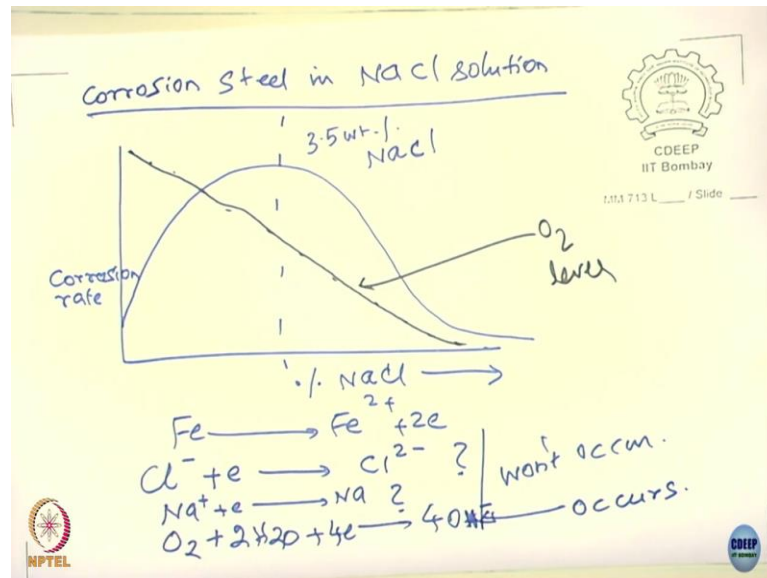 Corrosion Steel in NaCl solution
3.5 wt.%
NaCl
CDEEP
IIT Bombay
MM 713 L____ / Slide ____
O2
level
Corrosion
rate
% NaCl
Fe → Fe2+ + 2e
Cl- + e → Cl2- ?
Na+ + e → Na ?
won't occur.
O2 + 2H2O + 4e → 4OH- occurs.
NPTEL
CDEEP
IIT BOMBAY